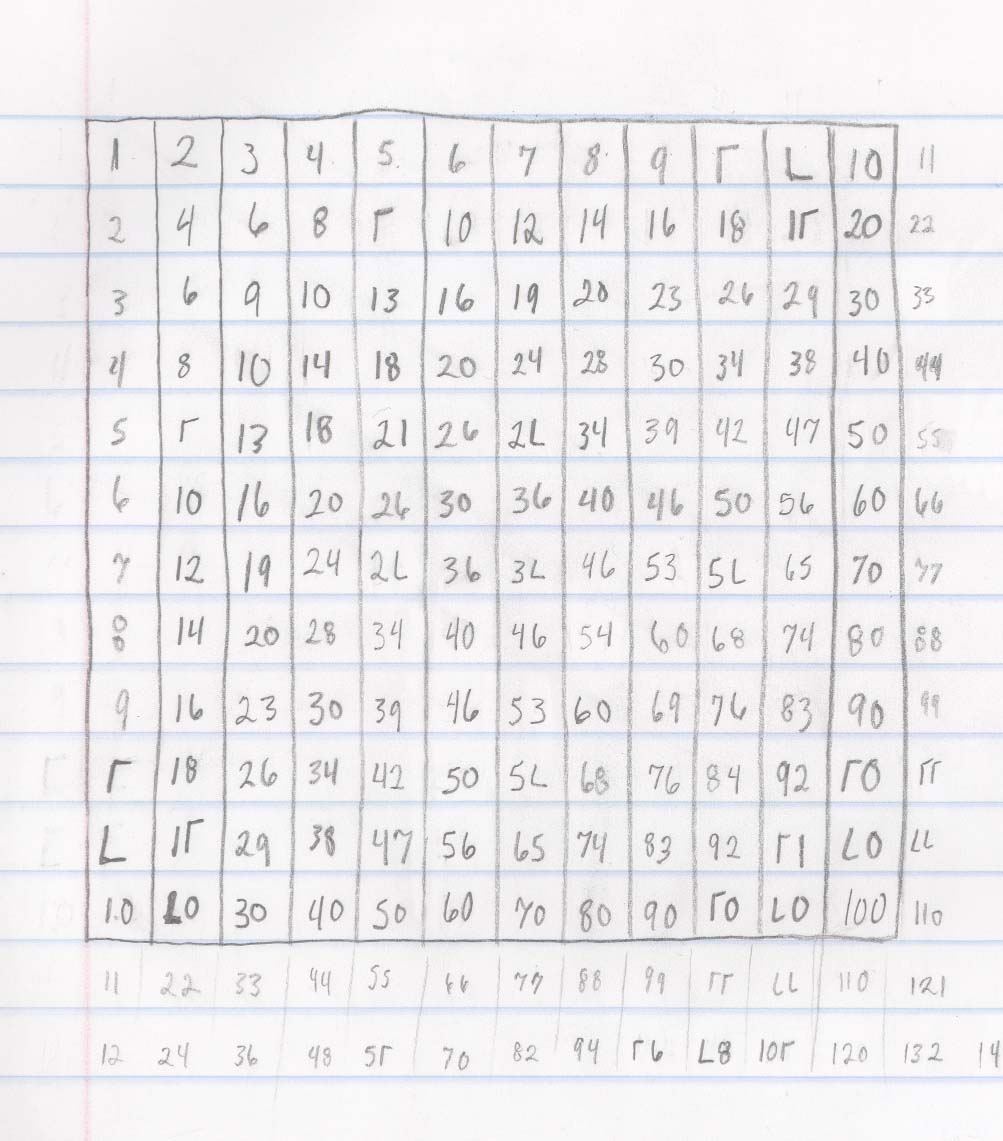 1 2 3 4 5 6 7 8 9 Γ L 10 11
2 4 6 8 Γ 10 12 14 16 18 1Γ 20 22
3 6 9 10 13 16 19 20 23 26 29 30 33
4 8 10 14 18 20 24 28 30 34 38 40 44
5 Γ 13 18 21 26 2L 34 39 42 47 50 55
6 10 16 20 26 30 36 40 46 50 56 60 66
7 12 19 24 2L 36 3L 46 53 5L 65 70 77
8 14 20 28 34 40 46 54 60 68 74 80 88
9 16 23 30 39 46 53 60 69 76 83 90 99
Γ 18 26 34 42 50 5L 68 76 84 92 Γ0 ΓΓ
L 1Γ 29 38 47 56 65 74 83 92 Γ1 L0 LL
10 L0 30 40 50 60 70 80 90 Γ0 L0 100 110
11 22 33 44 55 66 77 88 99 ΓΓ LL 110 121
12 24 36 48 5Γ 70 82 94 Γ6 L8 10Γ 120 132 14